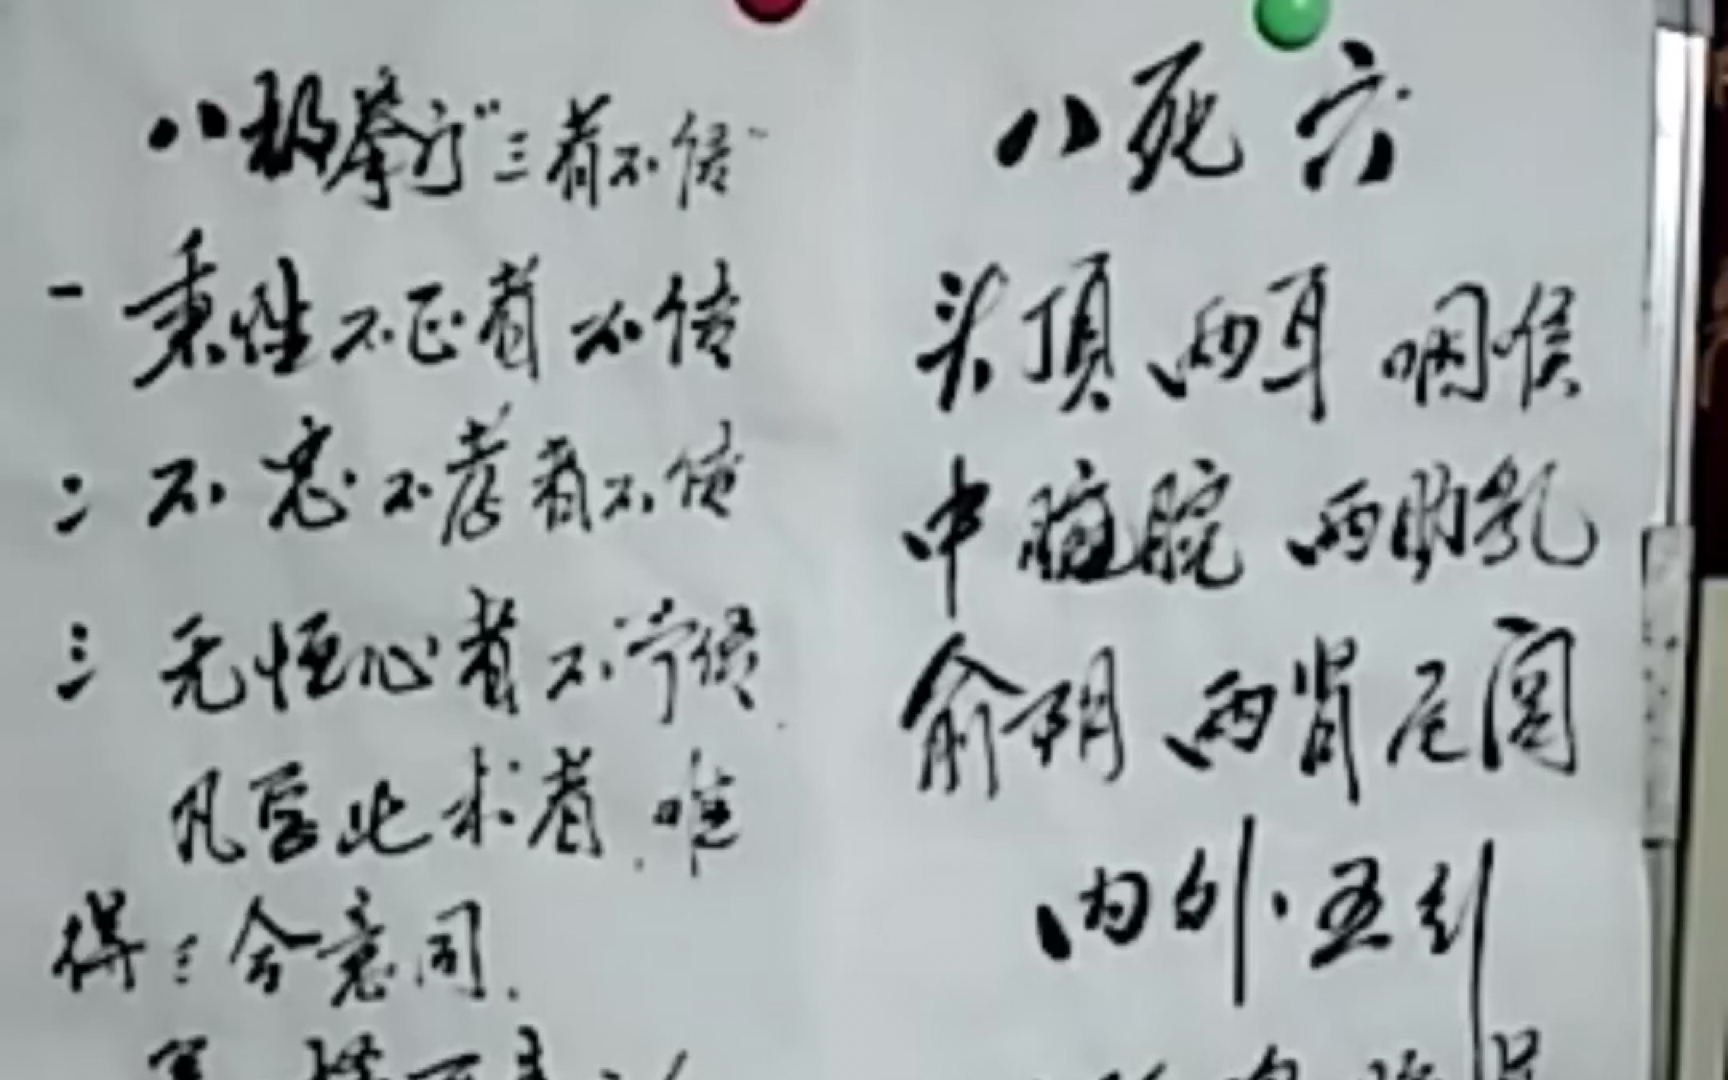 八极拳门“三者不传”
一 秉性不正者不传
二 不忠不孝者不传
三 无恒心者不传
凡学此术者.唯
得三会意同.
八死穴
头顶 两耳 咽喉
中脘 两肋乳
前阴 两肾尾闾
内外五行